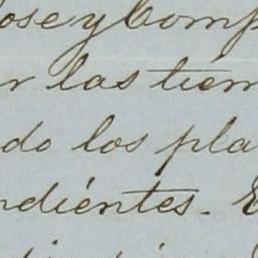 ose y Comp
r las tiem
do los pla
ndiéntes. E